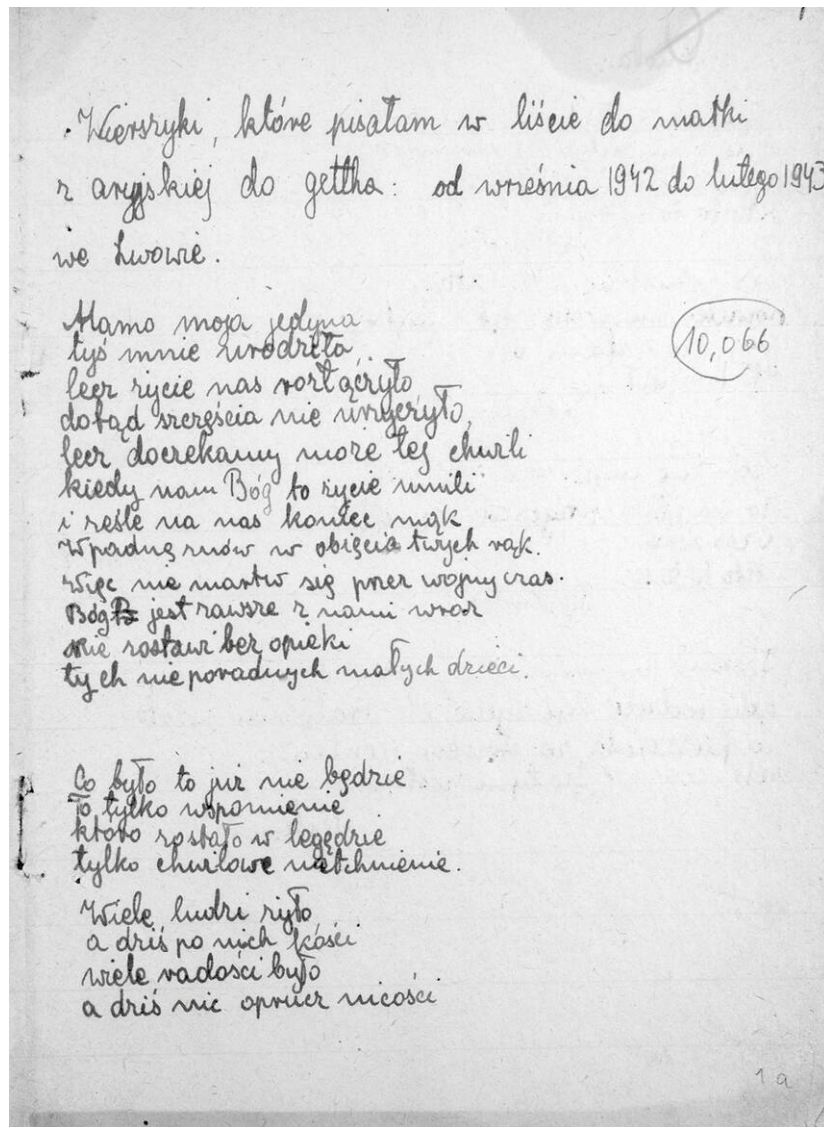 Wierszyki, które pisałam w liście do matki
z aryjskiej do gettha: od września 1942 do lutego 1943
we Lwowie.
Mamo moja jedyna
tyś mnie zrodziła,
lecz życie nas rozłączyło
dotąd szczęścia nie użyczyło,
lecz doczekamy może tej chwili
kiedy nam Bóg to życie umili
i ześle na nas koniec mąk
Wpadnę znów w objęcia twych rąk.
więc nie martw się przez wojny czas.
Bóg jest zawsze z nami wraz
nie zostawi bez opieki
tych nie poradnych małych dzieci.
10,066
Co było to już nie będzie
To tylko wspomnienie
które zostało w legędzie
tylko chwilowe natchnienie.
Wiele ludzi żyło
a dziś po nich kości
wiele radości było
a dziś nic oprucz nicości
1a